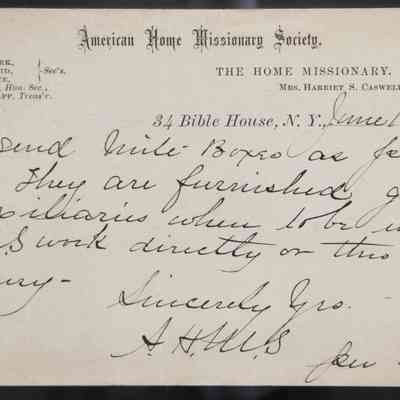 American Home Missionary Society.
RK,
ID,
CE,
Sec's.
Hon. Sec.,
APP, Treas'r.
THE HOME MISSIONARY.
MRS. HARRIET S. CASWELL
34 Bible House, N. Y., June 1
send Mite Boxes as
They are furnished
xiliaries when to be
S work directly or thro
ury-
Sincerely Yrs.
A. H. M. S